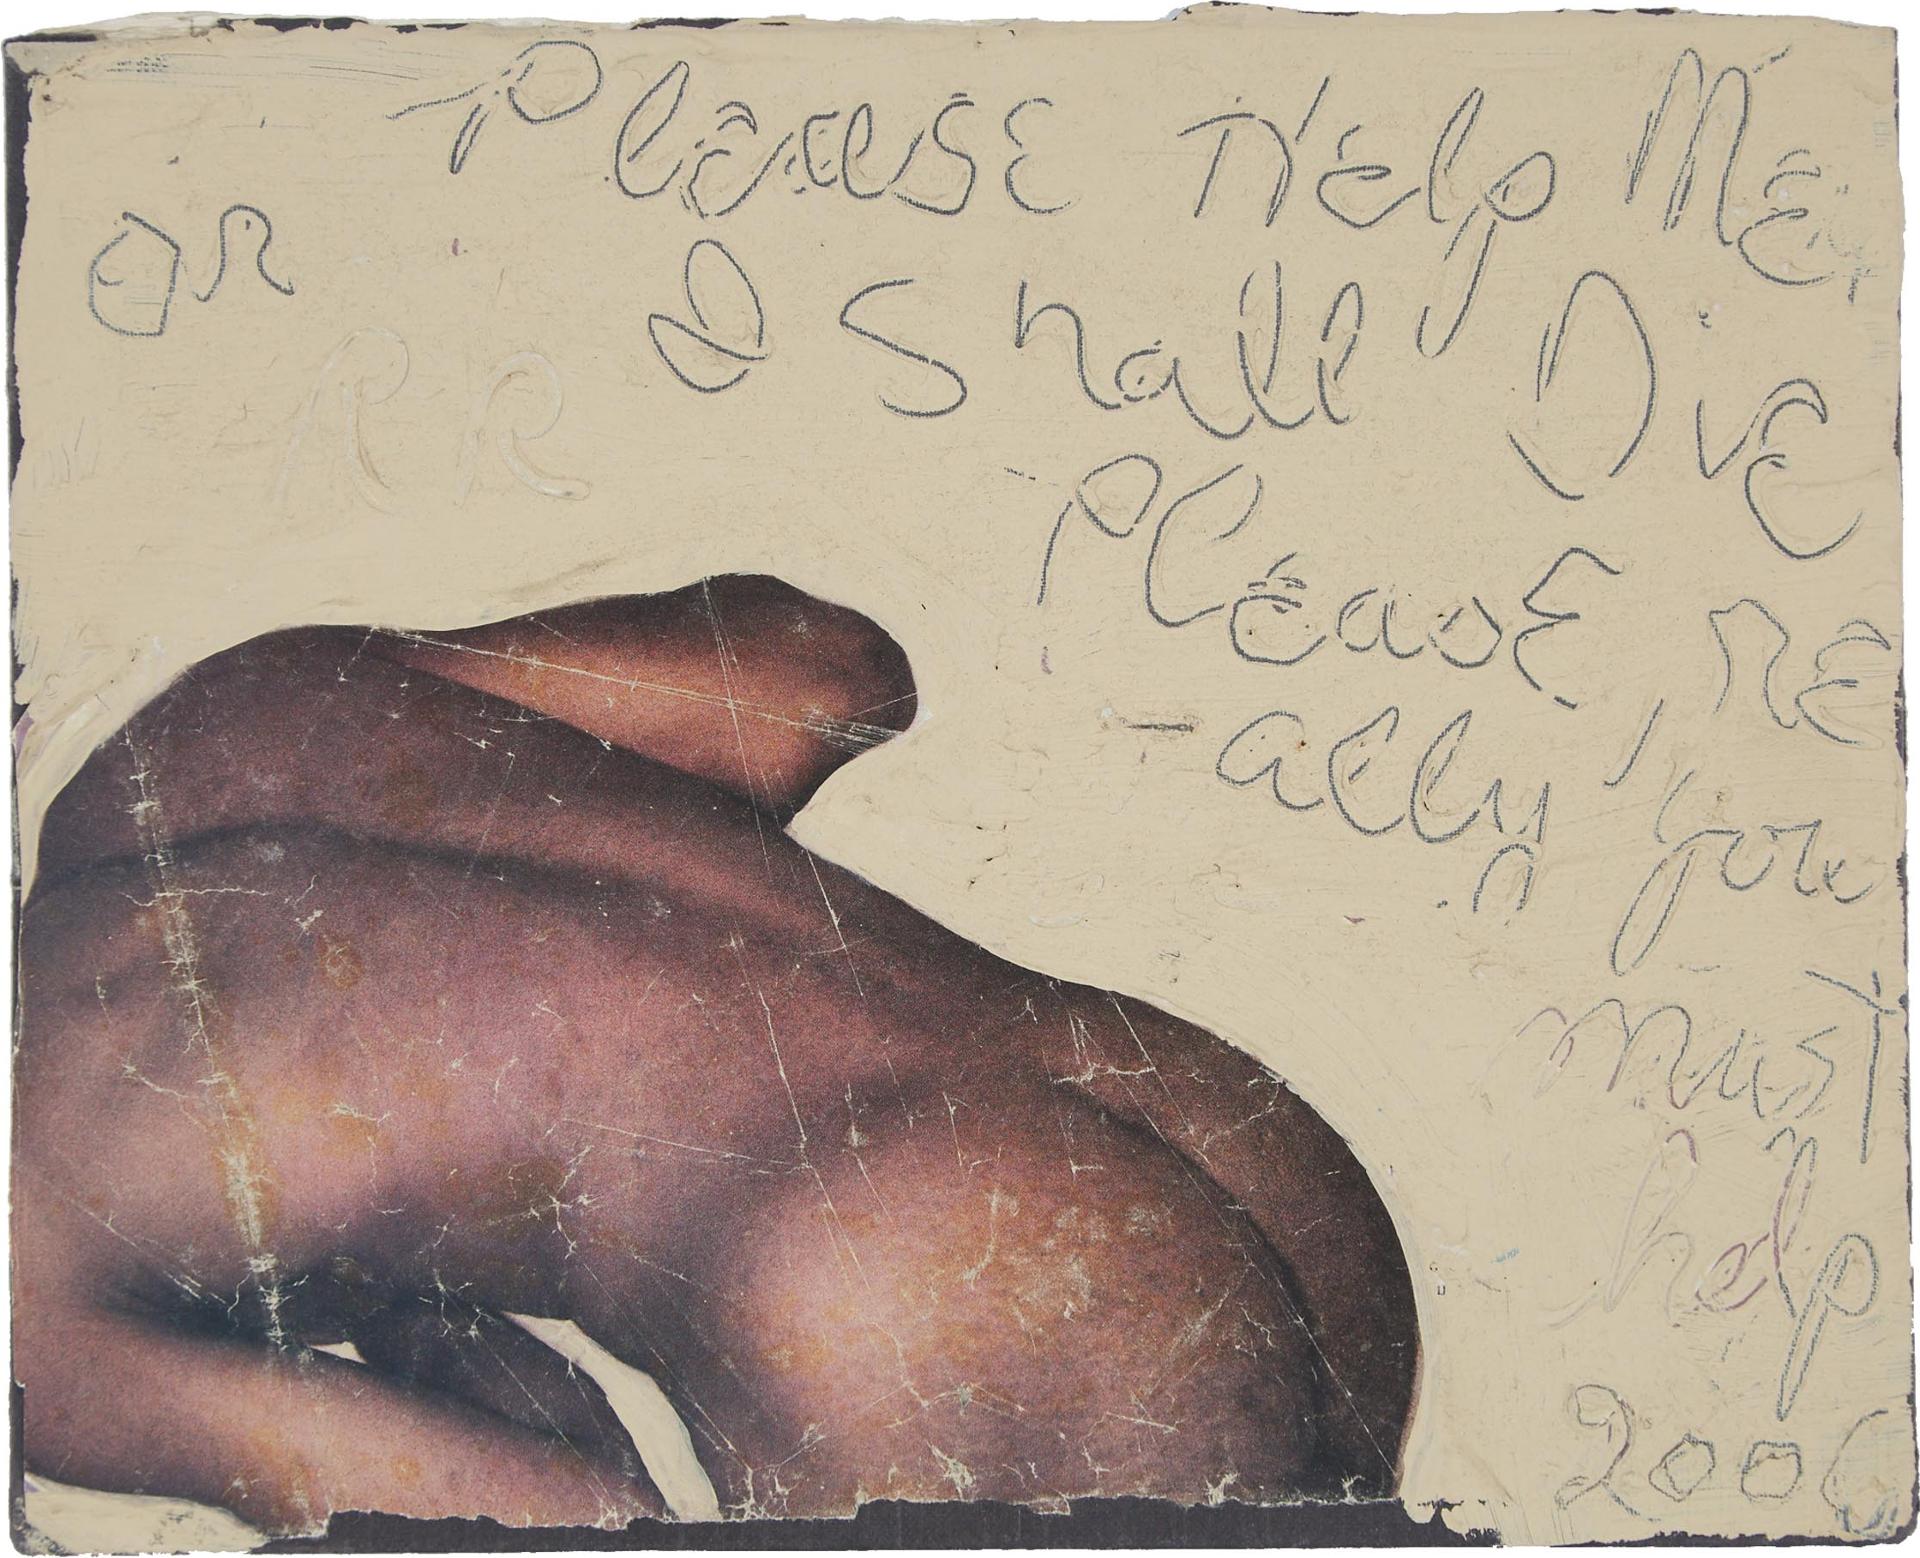 Please Help Me,
or I Shall Die
RR
Please, Re
-ally you
must
help
2006